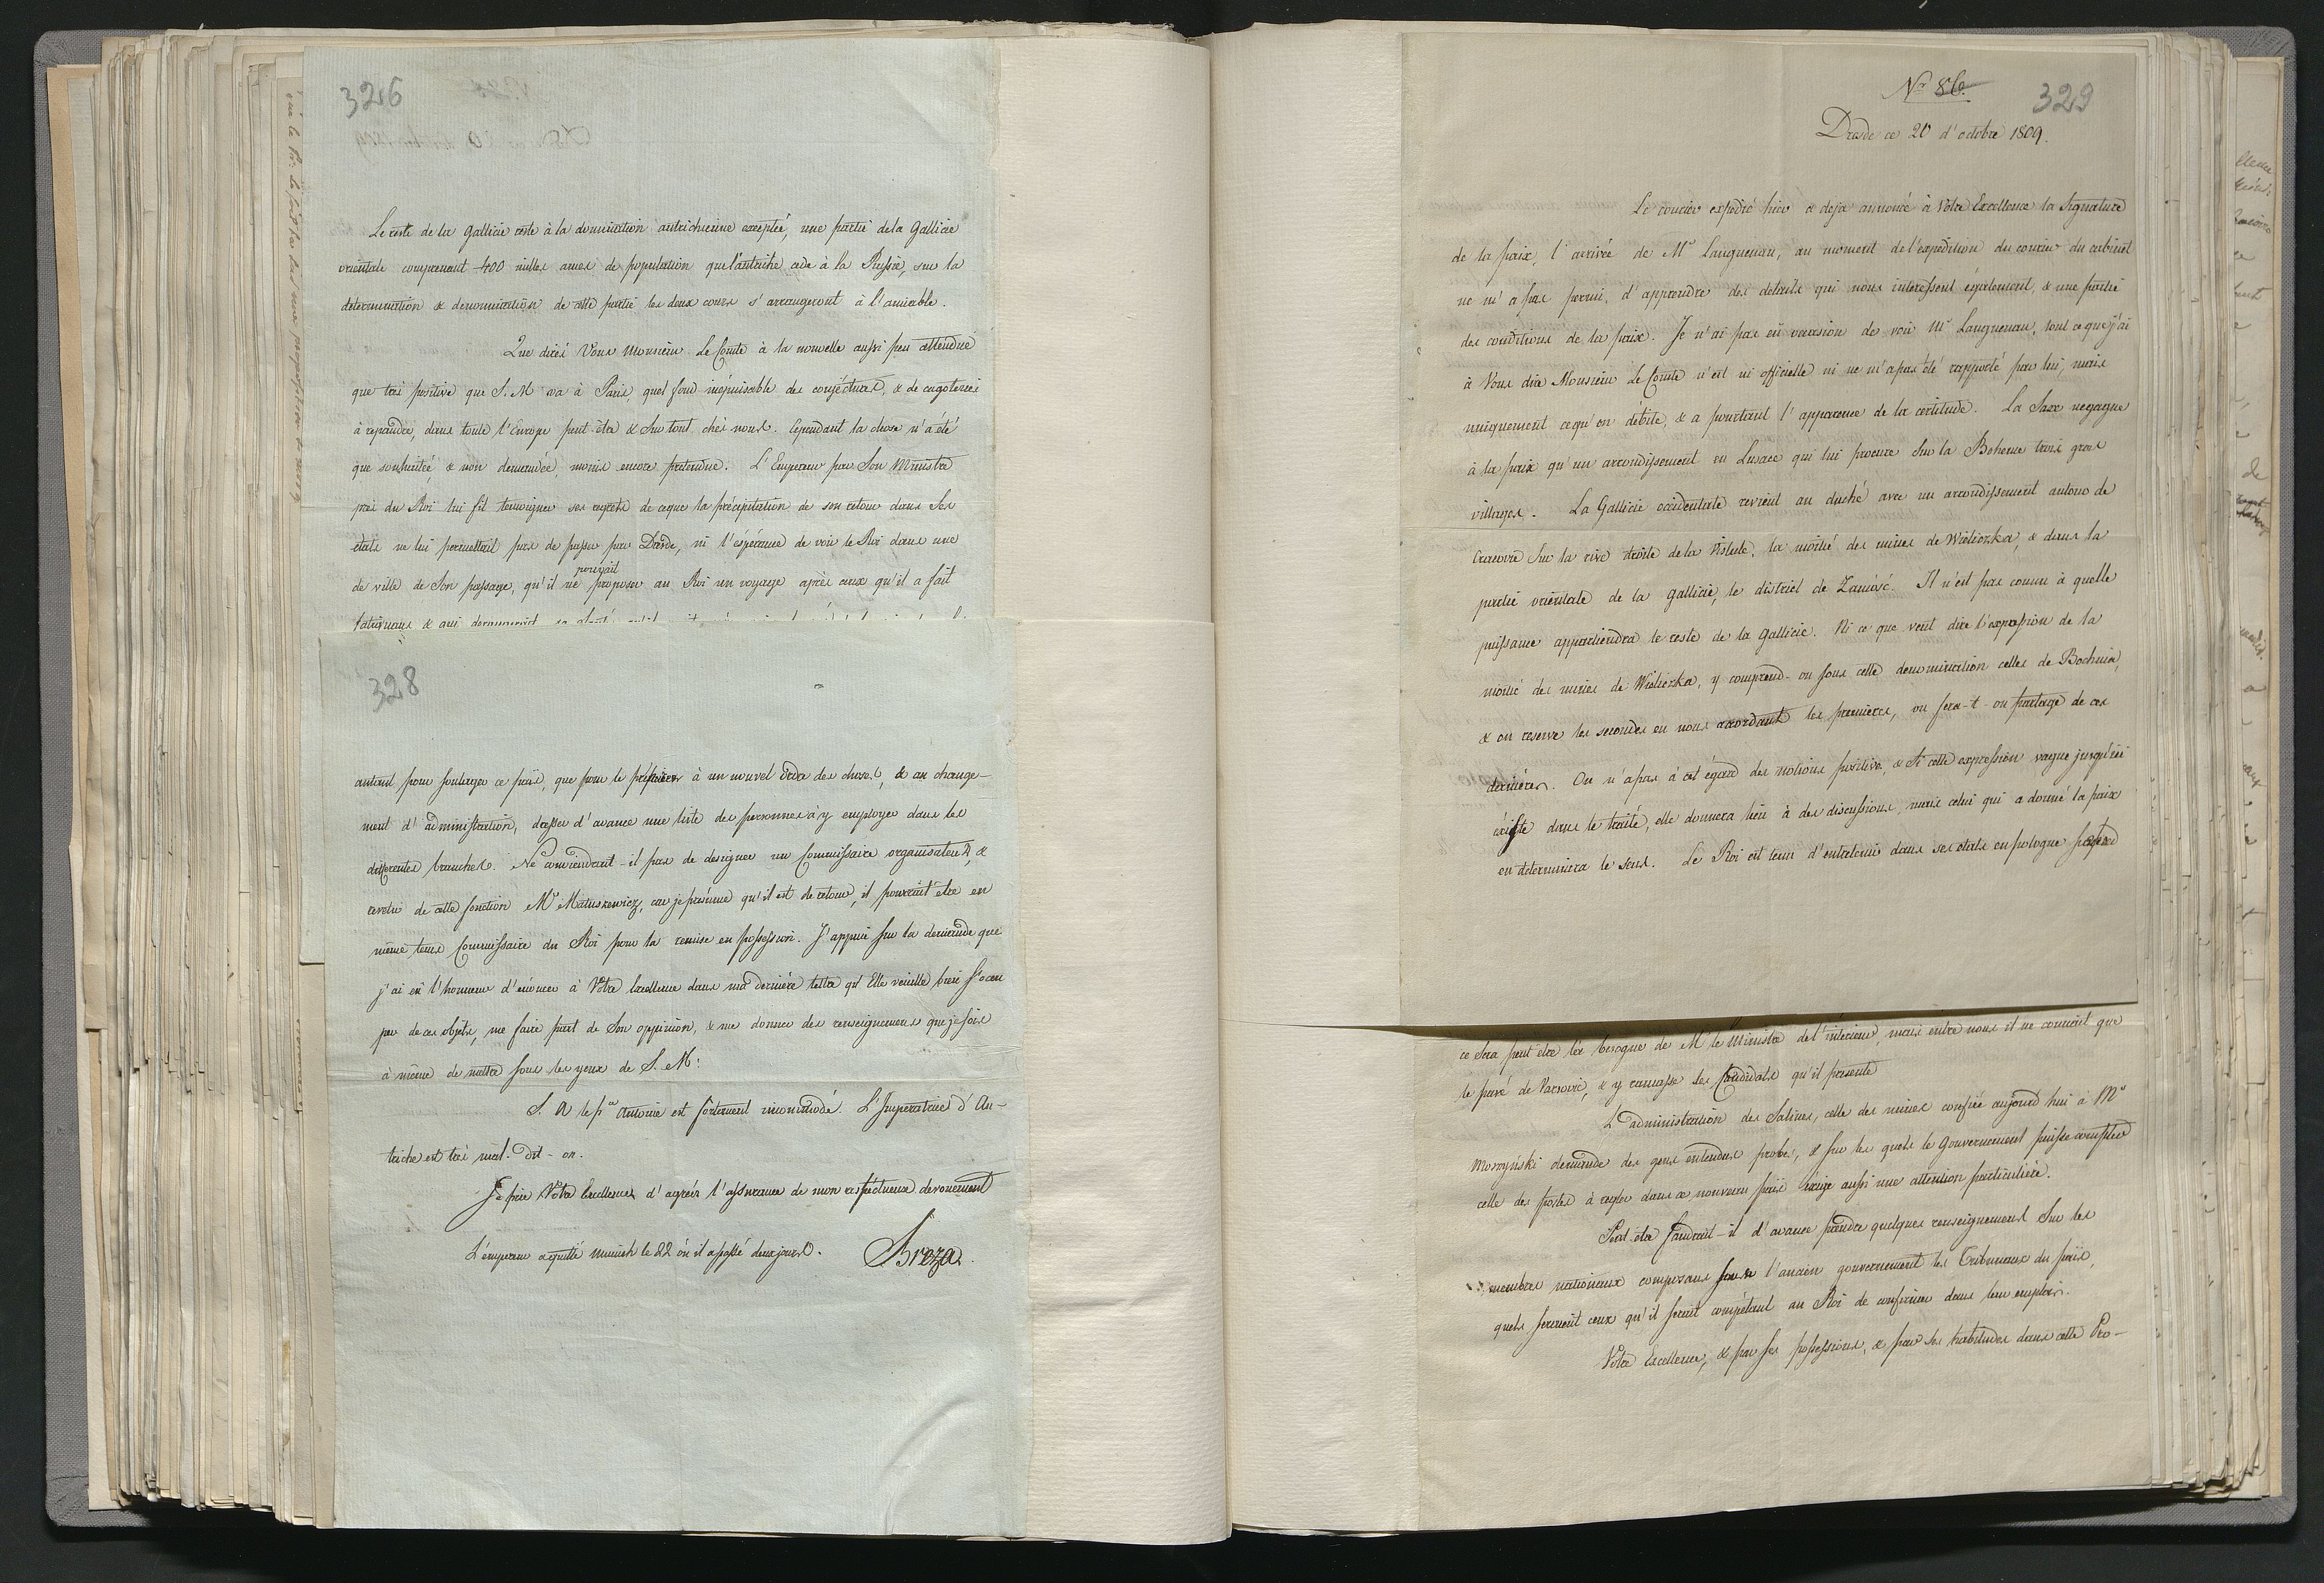 326
Le reste de la Gallicie reste à la domination autrichienne exceptée, une partie de la Gallicie
orientale comprenant 400 milles ames de population que l'autriche cede à la Russie, sur la
determination & denomination de cette partie les deux cours s'arrangeront à l'amiable.
Que dirés Vous Monsieur Le Comte à la nouvelle aussi peu attendue
que trés positive que S. M va à Paris, quel fond inépuisable des conjéctures, & de
à repandre, dans toute l'Europe peut-être & Sur tout chés nous. Cependant la chose n'a été
que souhaitée, & non demandée, moins encore prétendue. L'Empereur par Son Ministre
prés du Roi lui fit temoigner ses regrets de ceque la précipitation de son retour dans Ses
états ne lui permettait pas de passer par Dresde, ni l'espérance de voir le Roi dans une
de ville de Son passage, qu'il ne pouvait proposer au Roi un voyage après ceux qu'il a fait
328
autant pour soulager ce païs, que pour le préparer à un nouvel ordre des choses, & au change-
ment d'administration, dresser d'avance une liste des personnes à y employer dans les
differentes branches. Ne conviendrait-il pas de designer un Commissaire organisateur, &
revetu de cette fonction Mr Matuszewicz, car je présume qu'il est de retour, il pourrait etre en
même tems Commissaire du Roi pour la remise en possession. J'appuie sur la demande que
j'ai eû l'honneur d'enoncer à Votre Excellence dans ma derniére lettre qu'Elle veuille bien s'occu
per de ces objets, me faire part de Son oppinion, & me donner des renseignemens que je sois
à même de mettre sous les yeux de S. M:
S. A le pce Antoine est fortement incommodé. L'Imperatrice d'Au-
triche est trés mal. dit-on.
Je prie Votre Excellence d'agréer l'assurance de mon respectueux devouement
L'émpereur a quitté Munich le 22 où il a passé deux jours. Breza
No 86. 329
Dresde ce 20 d'octobre 1809.
Le courier expedié hier a deja annoncé à Votre Excellence la Signature
de la paix, l'arrivée de Mr Langenau, au moment de l'expédition du courier du cabinet
ne m'a pas permi, d'apprendre des details qui nous interessent également, & une partie
des conditions de la paix. Je n'ai pas eû occasion de voir Mr Langenau, tout ce que j'ai
à Vous dire Monsieur Le Comte n'est ni officielle ni ne m'a pas été rapporté par lui, mais
uniquement ce qu'on débite, & a pourtant l'apparence de la certitude. La Saxe ne gagne
à la paix qu'un arrondissement en Lusace qui lui procure Sur la Boheme trois gros
villages. La Gallicie occidentale revient au duché avec un arrondissement autour de
Cracovie Sur la rive droite de la Vistule, la moitié des mines de Wieliczka, & dans la
partie orientale de la Gallicie, le district de Zamość. Il n'est pas connu à quelle
puissance appartiendra le reste de la Gallicie. Ni ce que veut dire l'expression de la
moitié des mines de Wieliczka, y comprend-on sous cette denomination celles de Bochnia,
& on reserve les secondes en nous accordant les premières, ou fera-t-on partage de ces
derniéres. On n'a pas à cet égard des notions positive, & Si cette expression vague jusqu'ici
éxiste dans le traité, elle donnera lieu à des discussions, mais celui qui a donné la paix
en determinera le sens. Le Roi est tenu d'entretenir dans ses états en pologne
ce sera peut être la besogne de Mr le Ministre de l'interieur, mais entre nous il ne connait que
le pavé de Varsovie, & y ramasse les candidats qu'il presente
L'administration des Salines, celle des mines confiée aujourd'hui à Mr
Moszyński demande des gens entendus probes, & sur les quels le Gouvernement puisse compter
celle des postes à regler dans ce nouveau païs exige aussi une attention particulière.
Peut-être faudrait-il d'avance prendre quelques renseignemens Sur les
membres nationeaux composans sous l'ancien gouvernement les Tribuneaux du païs,
quels seraient ceux qu'il serait compétant au Roi de confirmer dans leur emplois.
Votre Excellence, & par ses possessions, & par ses habitudes dans cette Pro-